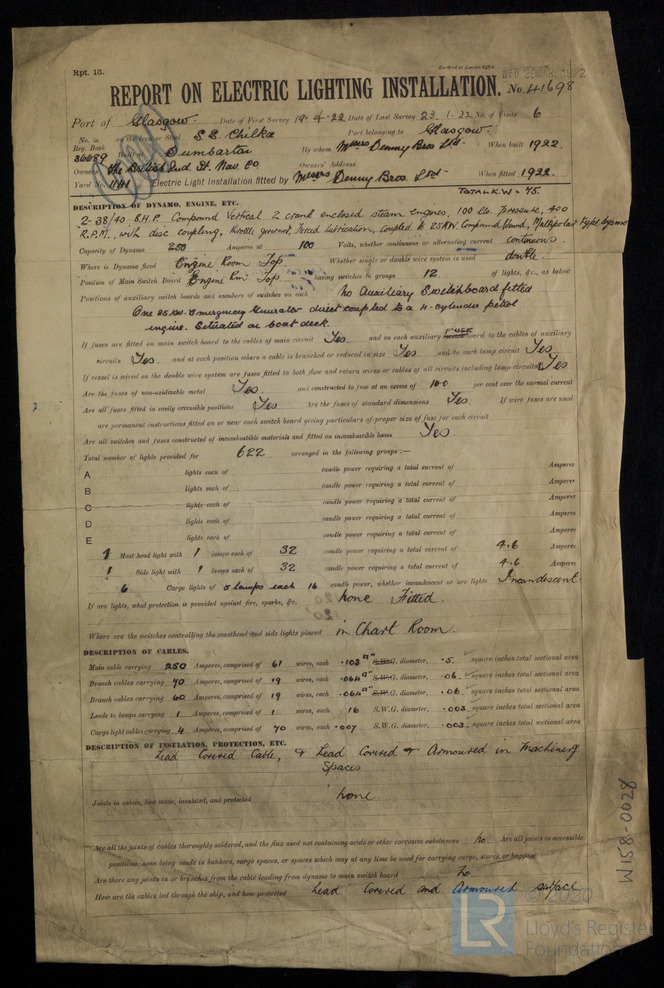 Rpt. 13.
WED
REPORT ON ELECTRIC LIGHTING INSTALLATION. No. 41698
Port of Glasgow Date of First Survey 19.4.22 Date of Last Survey 23 1.22 No. of Visits 6
No. in on the Iron or Steel S.S. Chilka Port belonging to Glasgow
Reg. Book
36689 Built at Dumbarton By whom Messrs Denny Bros Ltd. When built 1922.
Owners The British Ind. St. Nav. Co Owners' Address
Yard No. 1141 Electric Light Installation fitted by Messrs Denny Bros. Ltd When fitted 1922.
TOTAL K.W = 75
DESCRIPTION OF DYNAMO, ENGINE, ETC.
2-38/40 B.H.P. Compound Vertical 2 crank enclosed steam engines, 100 lbs. pressure, 400
R.P.M., with disc coupling, throttle governor, forced lubrication, coupled to 25KW. Compound Wound, Multipolar type dynamo
Capacity of Dynamo 250 Amperes at 100 Volts, whether continuous or alternating current continuous
Where is Dynamo fixed Engine Room Top. Whether single or double wire system is used double.
Position of Main Switch Board Engine Rm Top having switches to groups 12 of lights, &c., as below
Positions of auxiliary switch boards and numbers of switches on each No Auxiliary Switchboard fitted
One 25 KW. Emergency Generator direct coupled to a 4-cylinder petrol
engine. Situated on boat deck.
If fuses are fitted on main switch board to the cables of main circuit Yes. and on each auxiliary FUSE board to the cables of auxiliary
circuits Yes. and at each position where a cable is branched or reduced in size Yes and to each lamp circuit Yes
If vessel is wired on the double wire system are fuses fitted to both flow and return wires or cables of all circuits including lamp circuits Yes
Are the fuses of non-oxidizable metal Yes. and constructed to fuse at an excess of 100 per cent over the normal current
Are all fuses fitted in easily accessible positions Yes Are the fuses of standard dimensions Yes. If wire fuses are used
are permanent instructions fitted on or near each switch board giving particulars of proper size of fuse for each circuit
Are all switches and fuses constructed of incombustible materials and fitted on incombustible bases Yes.
Total number of lights provided for 622 arranged in the following groups:—
A lights each of candle power requiring a total current of Amperes
B lights each of candle power requiring a total current of Amperes
C lights each of candle power requiring a total current of Amperes
D lights each of candle power requiring a total current of Amperes
E lights each of candle power requiring a total current of Amperes
1 Mast head light with 1 lamps each of 32 candle power requiring a total current of 4.6 Amperes
1 Side light with 1 lamps each of 32 candle power requiring a total current of 4.6 Amperes
6 Cargo lights of 5 lamps each 16 candle power, whether incandescent or arc lights Incandescent
If arc lights, what protection is provided against fire, sparks, &c. None Fitted.
Where are the switches controlling the masthead and side lights placed in Chart Room.
DESCRIPTION OF CABLES.
Main cable carrying 250 Amperes, comprised of 61 wires, each .103" S.W.G. diameter, .5 square inches total sectional area
Branch cables carrying 70 Amperes, comprised of 19 wires, each .064" S.W.G. diameter, .06 square inches total sectional area
Branch cables carrying 60 Amperes, comprised of 19 wires, each .064" S.W.G. diameter, .06 square inches total sectional area
Leads to lamps carrying 1 Amperes, comprised of 1 wires, each 16 S.W.G. diameter, .003 square inches total sectional area
Cargo light cables carrying 4 Amperes, comprised of 70 wires, each .007 S.W.G. diameter, .003 square inches total sectional area
DESCRIPTION OF INSULATION, PROTECTION, ETC.
Lead Covered Cable, & Lead Covered & Armoured in Machinery
Spaces
Joints in cables, how made, insulated, and protected None
Are all the joints of cables thoroughly soldered, and the flux used not containing acids or other corrosive substances no Are all joints in accessible
positions, none being made in bunkers, cargo spaces, or spaces which may at any time be used for carrying cargo, stores, or baggage
Are there any joints in or branches from the cable leading from dynamo to main switch board no.
How are the cables led through the ship, and how protected Lead Covered and Armoured surface
W158-0028
LR
© 2020
Lloyd's Register
Foundation